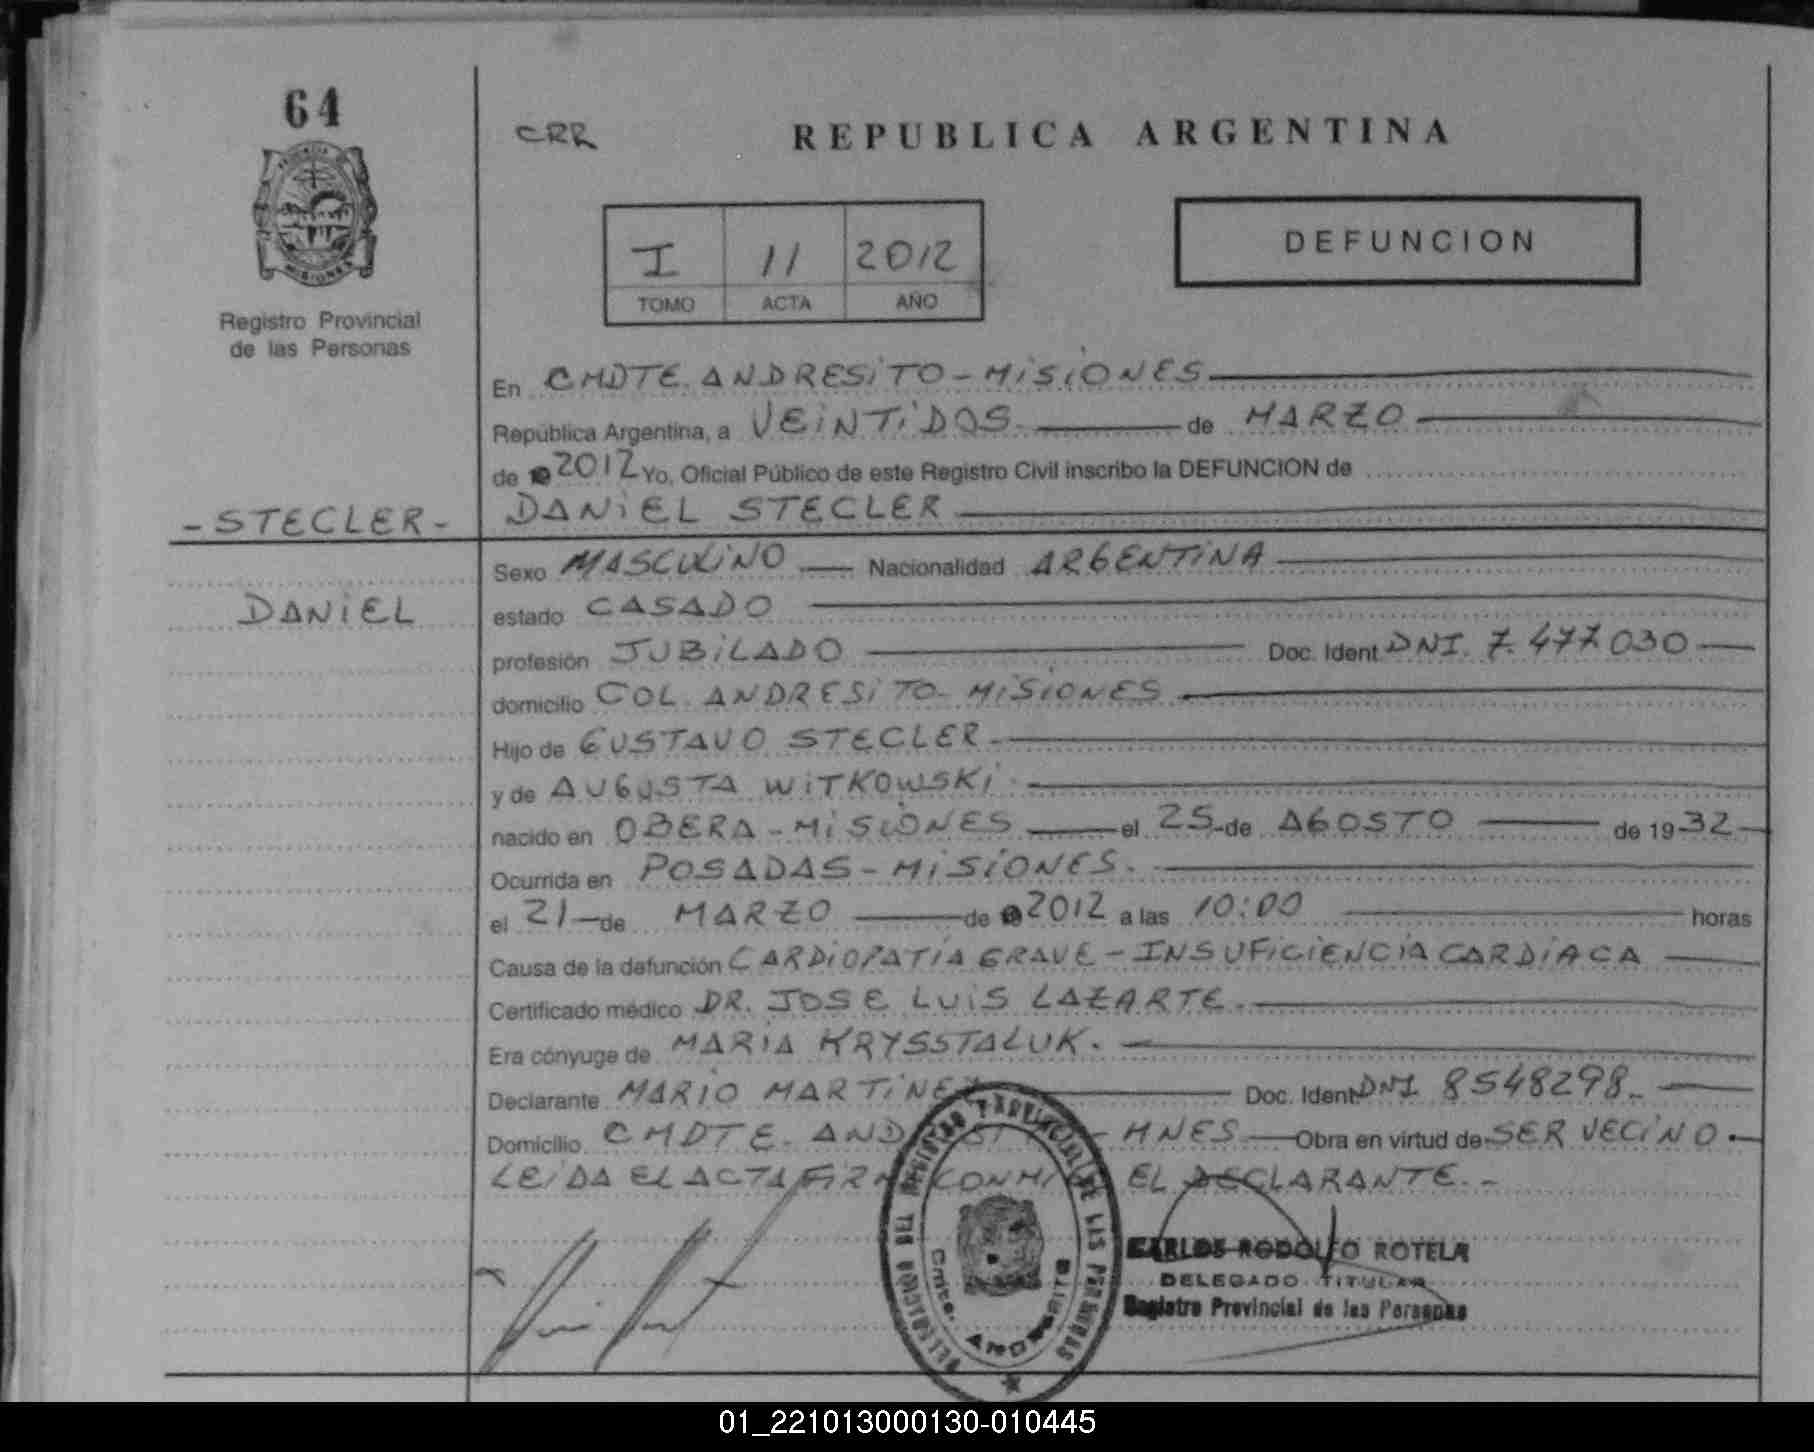 64
CRR
REPUBLICA ARGENTINA
I 11 2012
TOMO ACTA AÑO
DEFUNCION
MISIONES
Registro Provincial
de las Personas
En CMDTE. ANDRESiTO - MiSiONES
República Argentina, a VEiNTiDOS de MARZO
de 2012 Yo, Oficial Público de este Registro Civil inscribo la DEFUNCION de
- STECLER - DANiEL STECLER
Sexo MASCULiNO Nacionalidad ARGENTiNA
DANiEL
estado CASADO
profesión JUBiLADO Doc. Ident. DNI. 7.477.030
domicilio COL. ANDRESiTO - MiSiONES
Hijo de GUSTAVO STECLER.
y de AUGUSTA WiTKOWSKi.
nacido en OBERA - MiSiONES el 25 de AGOSTO de 19 32
Ocurrida en POSADAS - MiSiONES.
el 21 de MARZO de 2012 a las 10:00 horas
Causa de la defunción CARDiOPATiA GRAVE - INSUFiCiENCiA CARDiACA
Certificado médico DR. JOSE LUiS LAZARTE.
Era cónyuge de MARiA KRYSSTALUK.
Declarante MARiO MARTiNEZ Doc. Ident. DNI 8548298.
Domicilio CMDTE. ANDRESiTO - MNES Obra en virtud de SER VECiNO.
LEiDA EL ACTA FiRMA CONMiGO EL DECLARANTE. -
DELEGACION DEL REGISTRO PROVINCIAL DE LAS PERSONAS
Cmte. ANDRESITO
CARLOS RODOLFO ROTELA
DELEGADO TITULAR
Registro Provincial de las Personas
01_221013000130-010445